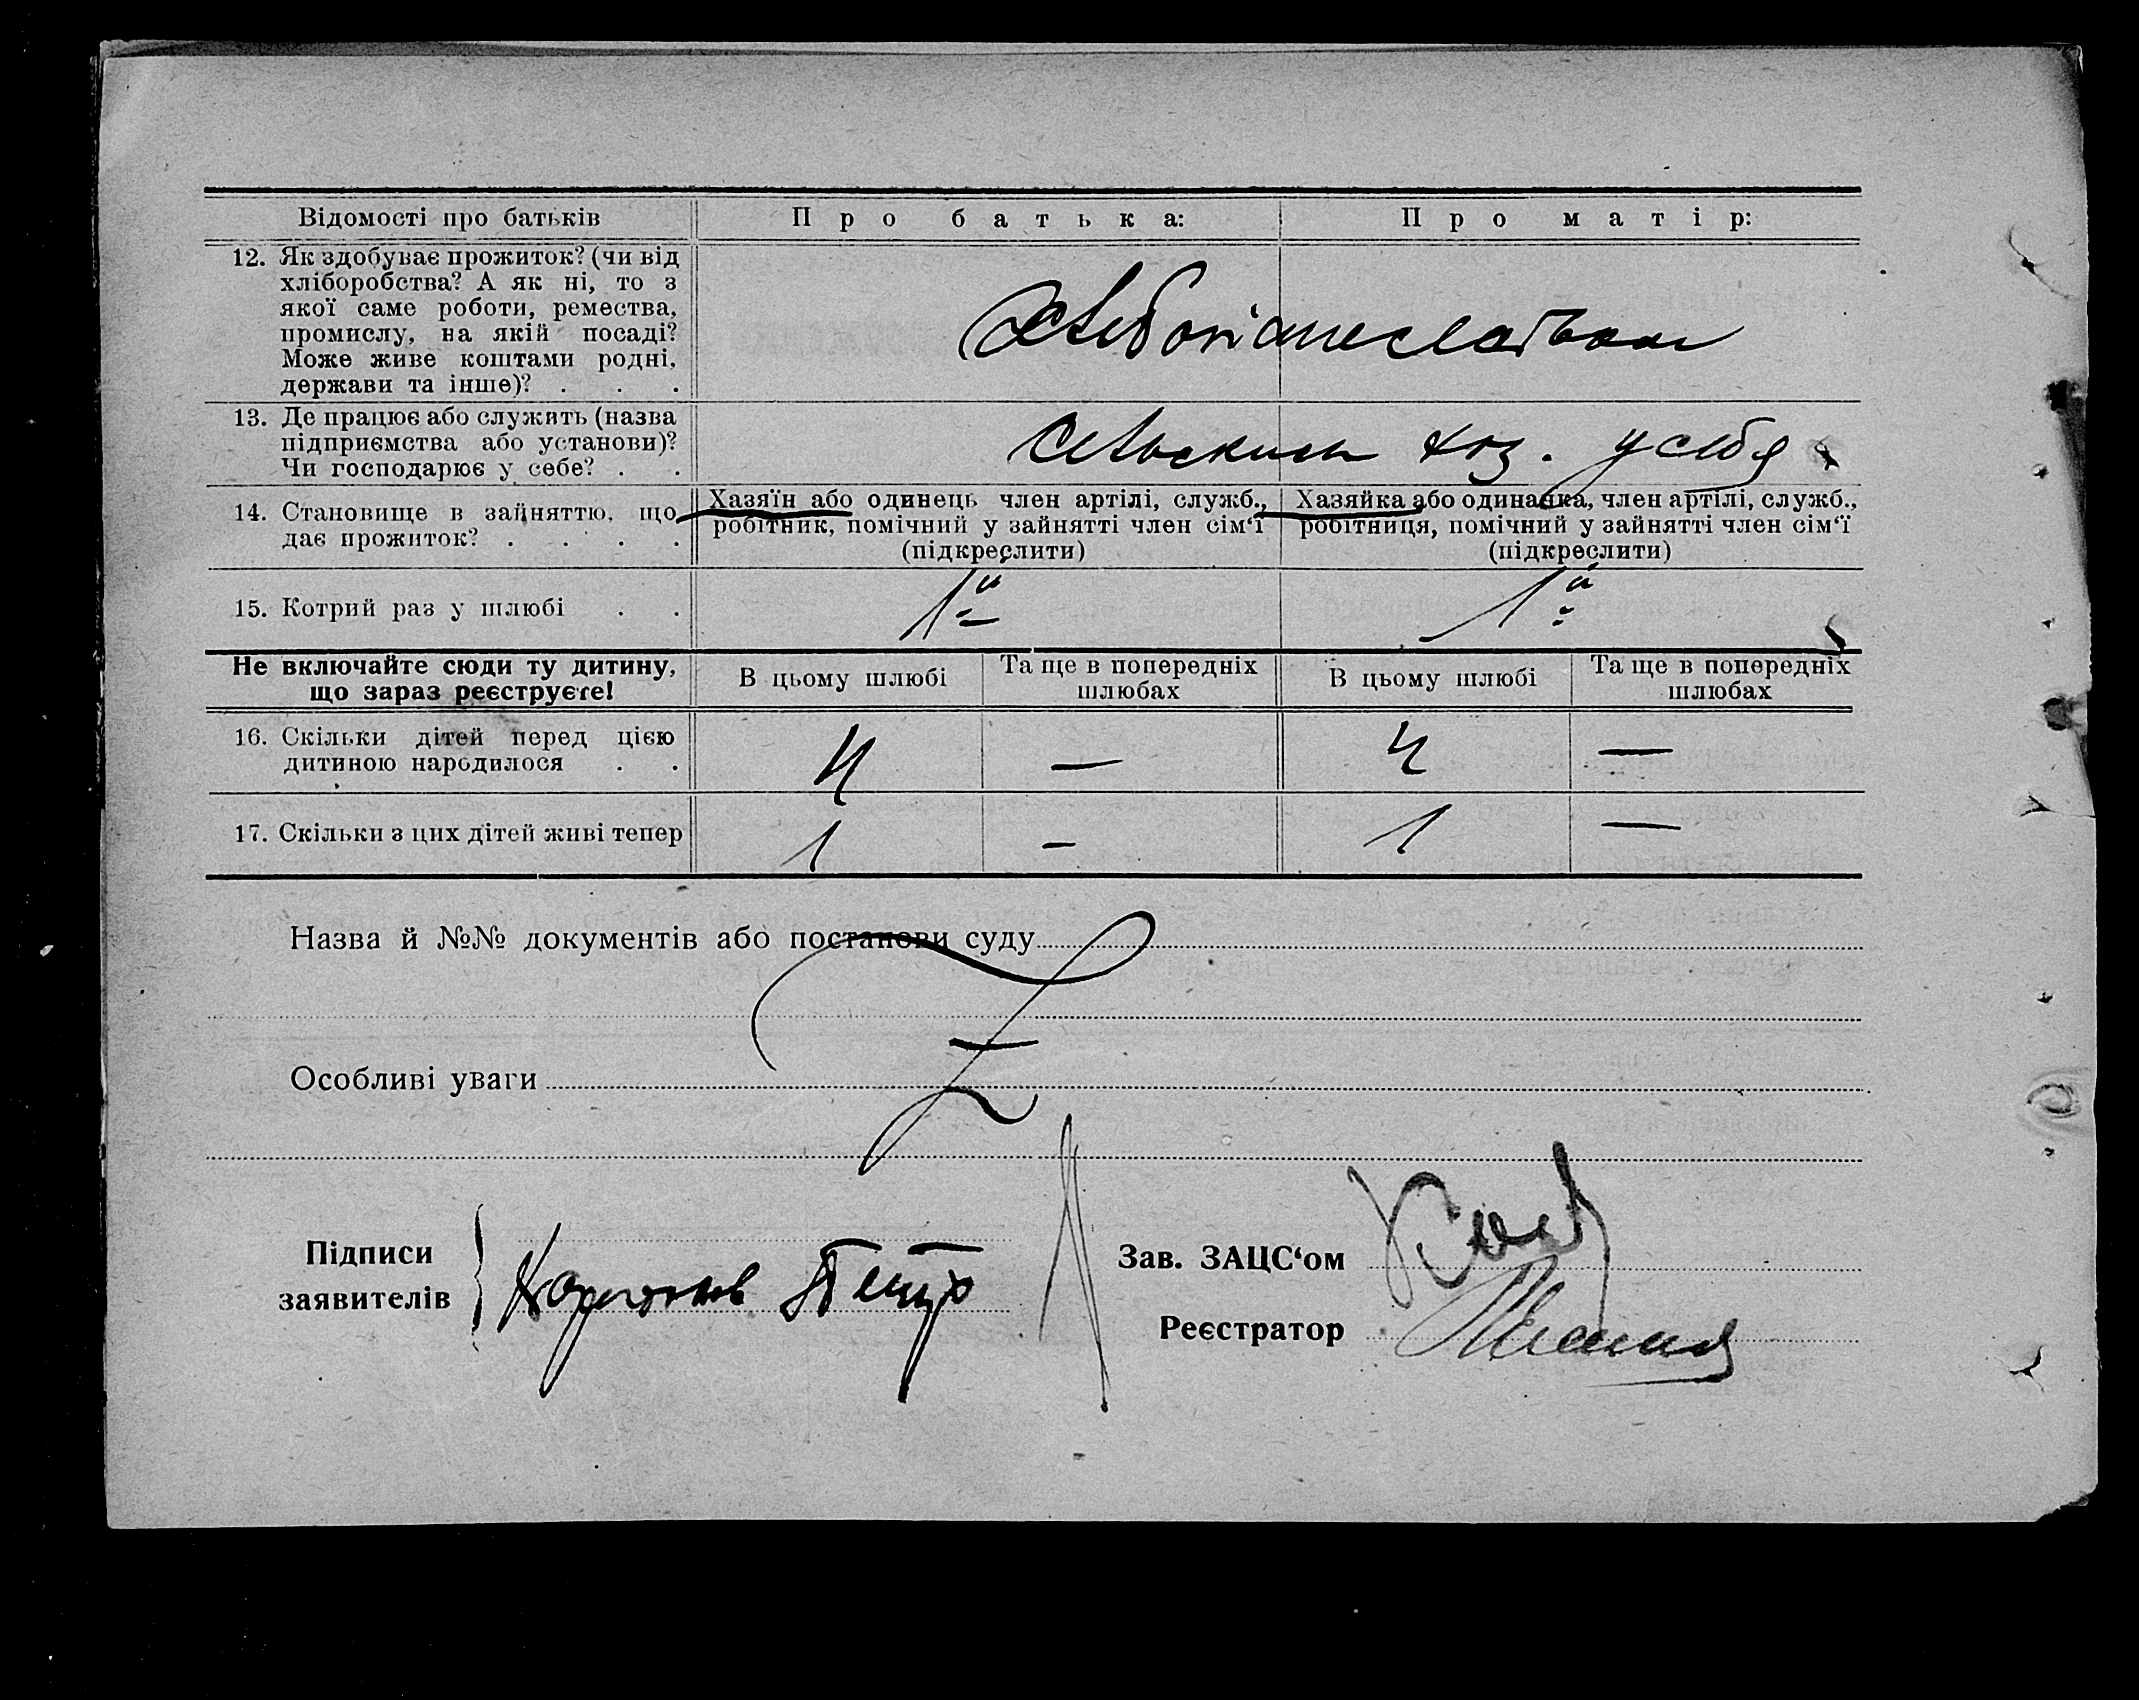 Відомості про батьків
Про батька:
Про матір:
12. Як здобуває прожиток? (чи від
хліборобства? А як ні, то з
якої саме роботи, ремества,
промислу, на якій посаді?
Може живе коштами родні,
держави та інше)? . . .
13. Де працює або служить (назва
підприємства або установи)?
Чи господарює у себе? . .
хоз. у себя
14. Становище в зайняттю, що
дає прожиток? . . . .
Хазяїн або одинець член артілі, служб.,
робітник, помічний у зайнятті член сім‘ї
(підкреслити)
Хазяйка або одиначка, член артілі, служб.,
робітниця, помічний у зайнятті член сім‘ї
(підкреслити)
15. Котрий раз у шлюбі . .
1й
1й
Не включайте сюди ту дитину,
що зараз реєструєте!
В цьому шлюбі
Та ще в попередніх
шлюбах
В цьому шлюбі
Та ще в попередніх
шлюбах
16. Скільки дітей перед цією
дитиною народилося . .
4
—
4
—
17. Скільки з цих дітей живі тепер
1
—
1
—
Назва й №№ документів або постанови суду
Z
Особливі уваги
Підписи
заявителів
Петр
Зав. ЗАЦС‘ом
Реєстратор